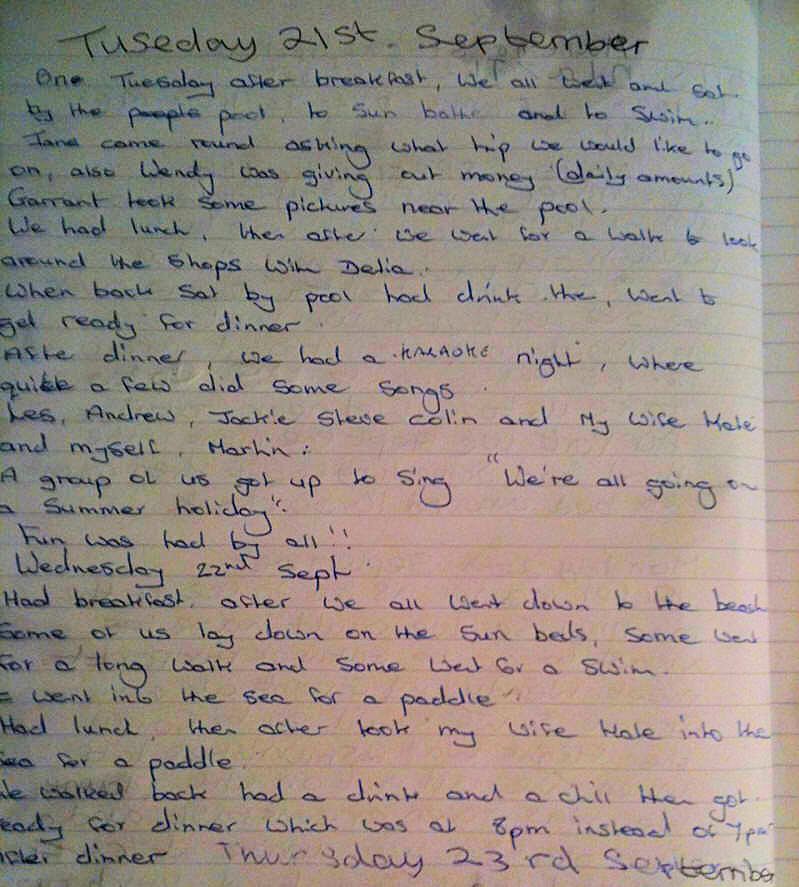 Tuseday 21st. September
One Tuesday after breakfast, we all went and sat.
by the people pool, to sun bathe and to swim..
Jane came round asking what trip we would like to go
on, also Wendy was giving out money (daily amounts)
Garrant took some pictures near the pool.
We had lunch, then after we went for a walk to look
around the shops with Delia.
When back sat by pool had drink the, went to
get ready for dinner.
Afte dinner, we had a KARAOKE night, where
quiek a few did some songs.
Les, Andrew, Jackie Steve Colin and My wife Kate
and myself, Martin:
A group of us got up to sing "We're all going on
a Summer holiday".
Fun was had by all!!
Wednesday 22nd Sept.
Had breakfast. after we all went down to the beach
Some of us lay down on the sun beds, some went
for a long walk and some went for a swim.
I went into the sea for a paddle.
Had lunch, then after took my wife Kate into the
sea for a paddle.
We walked back had a drink and a chill then got.
ready for dinner which was at 8pm instead of 7pm
After dinner Thursday 23rd September